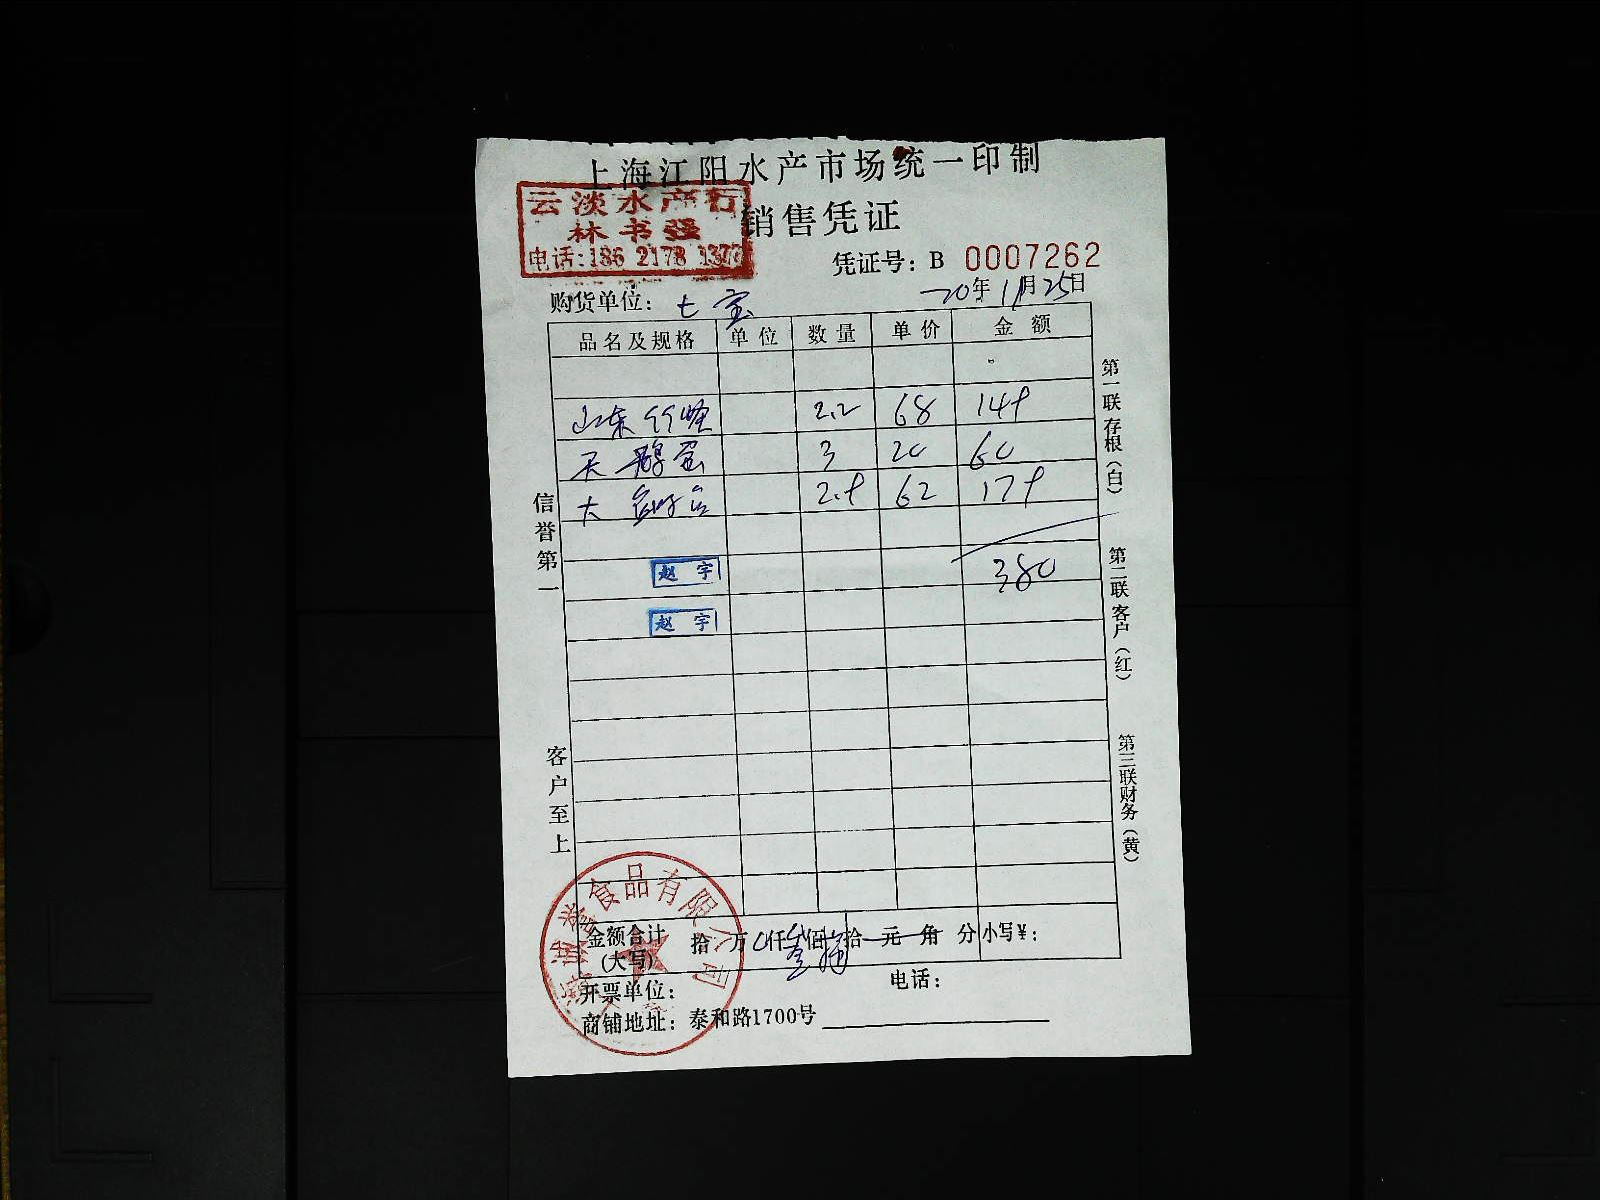 上海江阳水产市场统一印制
云淡水产行
林书强
电话:186 2178 137
销售凭证
凭证号: B 0007262
购货单位: 七宝
20年11月25日
品名及规格 单位 数量 单价 金额
山东竹蛏 2.2 68 149
3 20 60
大 62 17
380
赵宇
赵宇
信誉第一
客户至上
第一联存根(白)
第二联客户(红)
第三联财务(黄)
食品有限公司
金额合计(大写) 拾 万 仟叁佰捌拾 元 角 分 小写¥:
开票单位: 电话:
商铺地址: 泰和路1700号